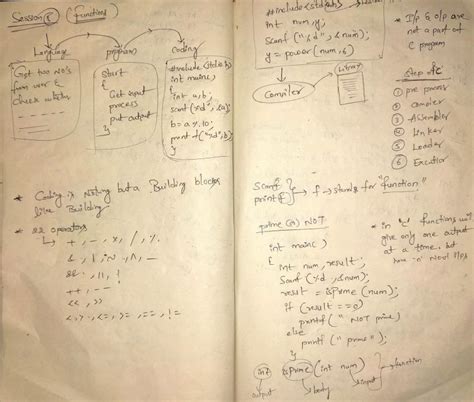 Session 8 (function)
Language
program
Coding
Get two No's
from user &
check
Start
{
Get input
process
put output
}
#include <stdio.h>
int main(
{
int a, b;
scanf("%d", &a);
b = a % 10;
printf("%d", b)
}
* Coding is Nothing but a Building blocks
like Building
* 22 operators
+, -, *, /, %.
&&, ||, !
++, --
<<, >>
<, >, <=, >=, ==, !=
#include <stdio.h>
int num, y;
Scanf("%d", &num);
y = power(num, 6)
Compiler
library
* I/p & o/p are
not a part of
C program
Step of C
① pre process
② Compiler
③ Assembler
④ Linker
⑤ Loader
⑥
Scanf
printf
} → f → stands for "function"
prime (or) NOT
int main(
{
int num, result;
Scanf("%d", &num);
result = isPrime(num);
if (result == 0)
printf("NOT prime)
else
printf("prime");
}
int isPrime (int num) } → function
output
body
input
* in "C" functions will
give only one output
at a time, but
have 'n' No of I/ps